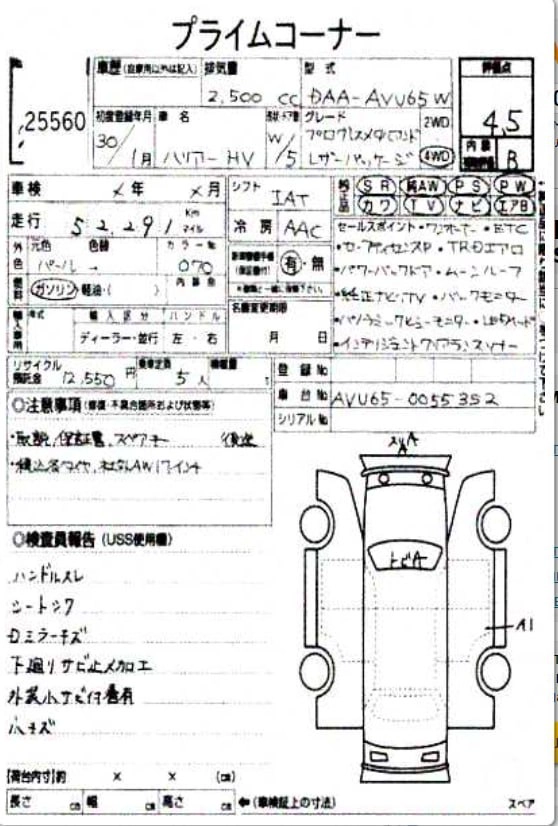 プライムコーナー
車歴(自家用以外は記入)
排気量
型式
評価点
2,500 cc
DAA-AVU65W
4.5
25560
初度登録年月
車名
グレード
2WD
30/1月
ハリアー HV
W/5
レザーパッケージ
4WD
内装
B
車検
×年 ×月
シフト
IAT
SR 純AW PS PW
カワ TV ナビ エアB
走行
52,291
Km
マイル
冷房
AAC
セールスポイント・ワンオーナー・ETC
・TRDエアロ
外色
元色
色替
カラーNo
・パワーバックドア・ムーンルーフ
パール →
070
有・無
・純正ナビ、TV・バックモニター
燃料
ガソリン・軽油・( )
内装色
名義変更期限
輸入車用
年式
輸入区分
ハンドル
ディーラー・並行
左・右
月 日
リサイクル預託金
12,550円
乗車定員
5人
積載量
t
登録No
車台No
AVU65-0055352
シリアルNo
◎注意事項(修復・不具合箇所および状態等)
・取説,保証書,スペアキー 後送
・積込冬タイヤ,社外AW17インチ
◎検査員報告(USS使用欄)
ハンドルスレ
シートシワ
Dミラーキズ
下廻りサビ止メ加工
外装小サビ付着有
小キズ
スリA
A
トビA
A1
[荷台内寸]約 × × (cm)
長さ cm 幅 cm 高さ cm ←(車検証上の寸法)
スペア